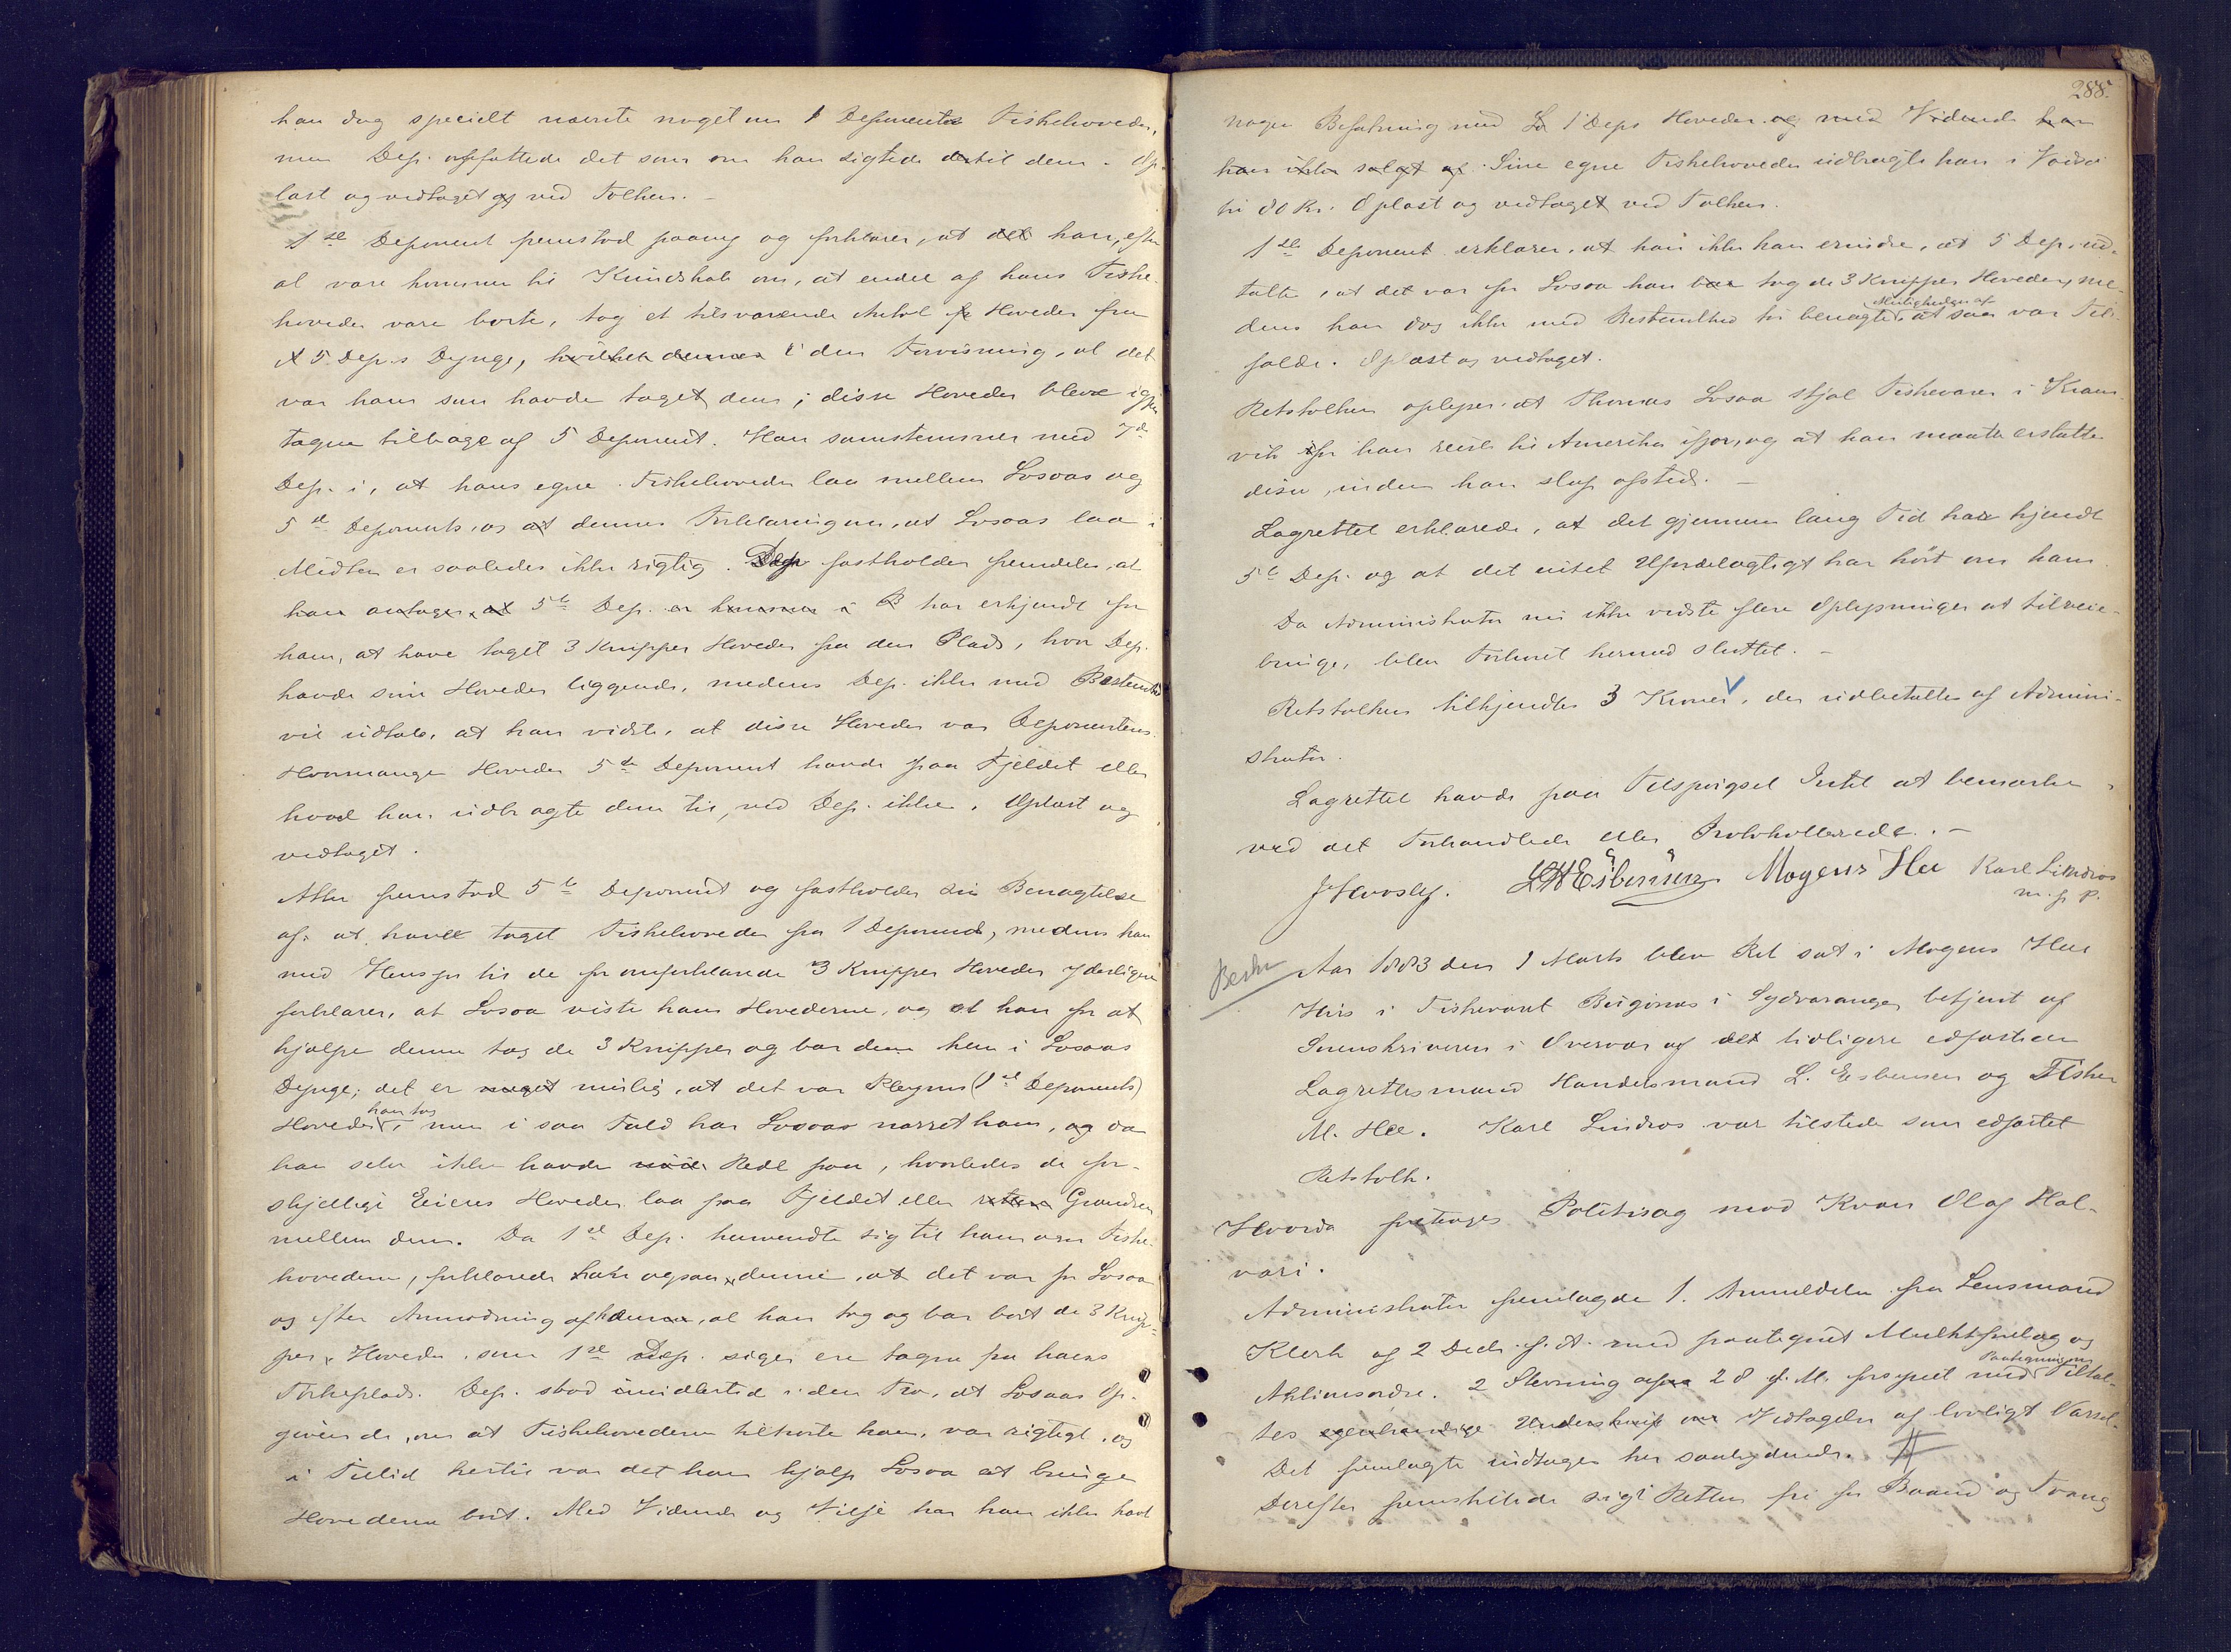 han dog specielt nævnte noget om 1 Deponents Fiskehoveder,
men Dep. opfattede det som om han sigtede dertil dem. Op-
læst og vedtaget og ved Tolken. –
1ste Deponent fremstod paany og forklarer, at det han, efter
at være kommen til Kundskab om, at endel af hans Fiske-
hoveder vare borte, tog et tilsvarende Antal fr Hoveder fra
A 5 Dep.s Dynge, hvilket dennes i den Forvisning, at det
var ham som havde taget dem; disse Hoveder bleve igjen
tagne tilbage af 5 Deponent. Han samstemmer med 7de
Dep. i, at hans egne Fiskehoveder laa mellem Losoas og
5te Deponents, og at dennes Forklaring om, at Losoas laa i
Midten er saaledes ikke rigtig. Dep fastholder fremdeles, at
han antager, at 5te Dep. er kommen i B har erkjendt for
ham, at have taget 3 Knipper Hoveder fra den Plads, hvor Dep.
havde sine Hoveder liggende, medens Dep. ikke med Bestemthed
vil udtale, at han vidste, at disse Hoveder var Deponentens.
Hvormange Hoveder 5te Deponent havde paa Fjeldet eller
hvad han udbragte dem til, ved Dep. ikke. Oplæst og
vedtaget.
Atter fremstod 5te Deponent og fastholder sin Benægtelse
af at have taget Fiskehoveder fra 1 Deponent, medens han
med Hensyn til de før omforklarede 3 Knipper Hoveder yderligere
forklarer, at Losoa viste ham Hovederne, og at han for at
hjælpe denne tog de 3 Knipper og bar dem hen i Losoas
Dynge; det er noget mulig, at det var Pleyms (1ste Deponents)
Hoveder han tog, men i saa Fald har Losoas narret ham, og da
han selv ikke havde nøie Rede paa, hvorledes de for-
skjellige Eieres Hoveder laa paa Fjeldet eller retten Grændsen
mellem dem. Da 1ste Dep. henvendte sig til ham om Fiske-
hovederne, forklarede han ogsaa denne, at det var for Losoa
og efter Anmodning af denne, at han tog og bar bort de 3 Knip-
per Hoveder, som 1ste Dep. siger ere tagne fra hans
Tørkeplads. Dep. stod imidlertid i den Tro, at Losoas Op-
givende, om at Fiskehovederne tilhørte ham, var rigtigt, og
i Tillid hertil var det han hjalp Losoa at bringe
Hovederne bort. Med Vidende og Vilje har han ikke havt
288.
nogen Befatning med Lo 1 Deps Hoveder og med Vidende han
har ikke solgt af. Sine egne Fiskehoveder udbragte han i Vadsø
til 80 Kr. Oplæst og vedtaget ved Tolken.
1ste Deponent erklærer, at han ikke kan erindre, at 5 Dep. ud-
talte, at det var for Losoa han bar tog de 3 Knipper Hoveder, me-
dens han dog ikke med Bestemthed til benægter Muligheden af at saa var Til-
fælde. Oplæst og vedtaget.
Retstolken oplyser at Thomas Losoa stjal Fiskevarer i Kram-
vik før han reiste til Amerika ifjor, og at han maatte erstatte
disse, inden han slap afsted. –
Lagrettet erklærede, at det gjennem lang Tid har kjendt
5te Dep. og at det intet Ufordelagtigt har hørt om ham.
Da Administrator nu ikke vidste flere Oplysninger at tilveie-
bringe, blev Forhøret hermed sluttet. –
Retstolken tilkjendtes 3 Kroner, der udbetaltes af Admini-
strator.
Lagrettet havde paa Tilspørgsel Intet at bemærke
ved det Forhandlede eller Protokollerede. –
J Hvoslef. L Esbensen Mogens Hee Karl Lindros
m. f. P.
Beskr
Aar 1883 den 1 Marts blev Ret sat i Mogens Hees
Hus i Fiskeværet Bugønes i Sydvaranger betjent af
Sorenskriveren i Overvær af det tidligere edfæstede
Lagrettesmænd Handelsmand L. Esbensen og Fisker
M. Hee. Karl Lindros var tilstede som edfæstet
Retstolk.
Hvorda foretoges Politisag mod Kvæn Olaf Hal-
vari.
Administrator fremlagde 1. Anmeldelse fra Lensmand
Klerk af 2 Decb. f. A. med paategnet Mulktforelæg og
Aktionsordre. 2 Stevning af 28 f. M. forsynet med Paategning om Tiltal-
tes egenhændige Underskrift om Vedtagelse af lovligt Varsel.
Det fremlagte indtages her saalydende. #
Derefter fremstillede sig i Retten fri for Baand og Tvang